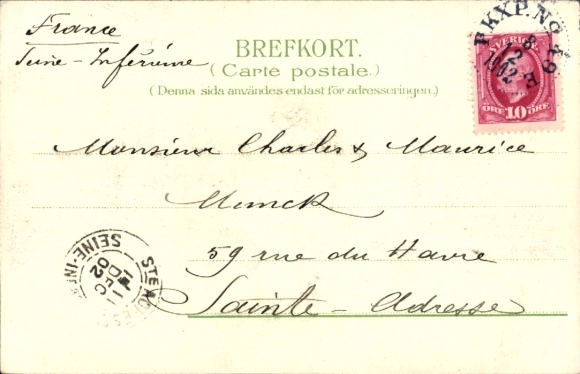 France
Seine-Inférieure
BREFKORT.
(Carte postale.)
(Denna sida användes endast för adresseringen.)
PKXP. No 49
8 12 1902
SVERIGE
ÖRE 10 ÖRE
Monsieur Charles & Maurice
Munck
59 rue du Havre
Sainte-Adresse
STE ADRESSE
11 DEC 02
SEINE-INF